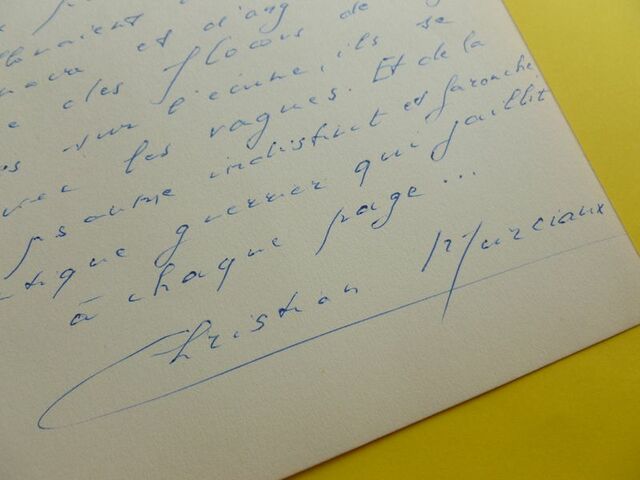 et d'ang
des flocons de
sur l'écume, ils se
les vagues. Et de la
psaume indistinct et farouche
guerrier qui jaillit
à chaque page...
Christian Murciaux